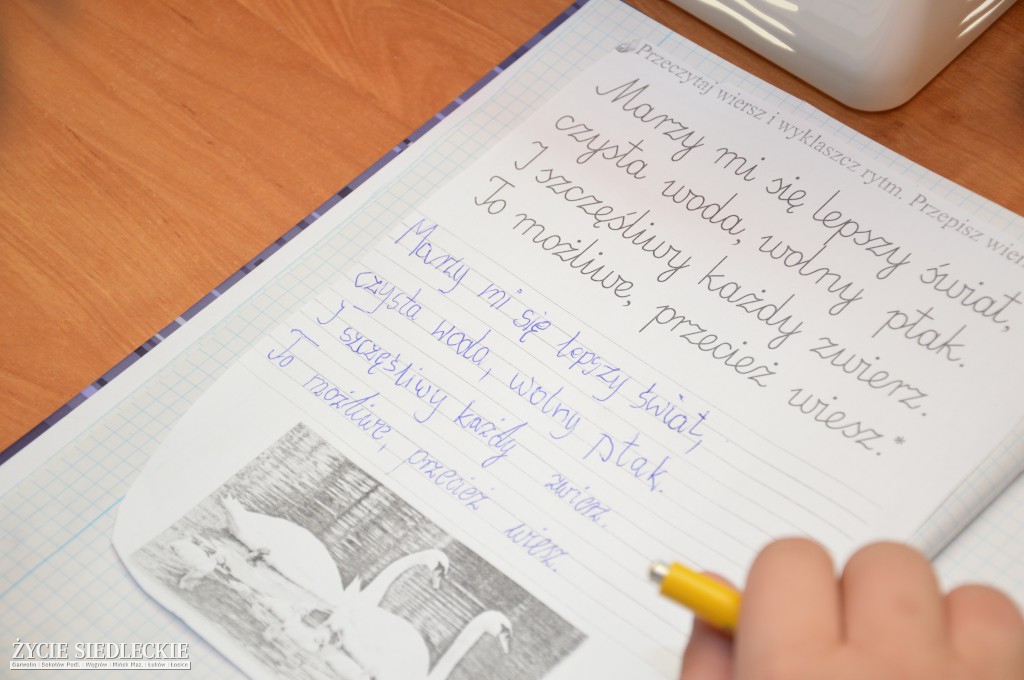 Przeczytaj wiersz i wyklaszcz rytm. Przepisz
Marzy mi się lepszy świat,
czysta woda, wolny ptak.
I szczęśliwy każdy zwierz.
To możliwe, przecież wiesz.*
Marzy mi się lepszy świat,
czysta woda, wolny ptak.
I szczęśliwy każdy zwierz.
To możliwe, przecież wiesz.
ŻYCIE SIEDLECKIE
Garwolin | Sokołów Podl. | Węgrów | Mińsk Maz. | Łuków | Łosice